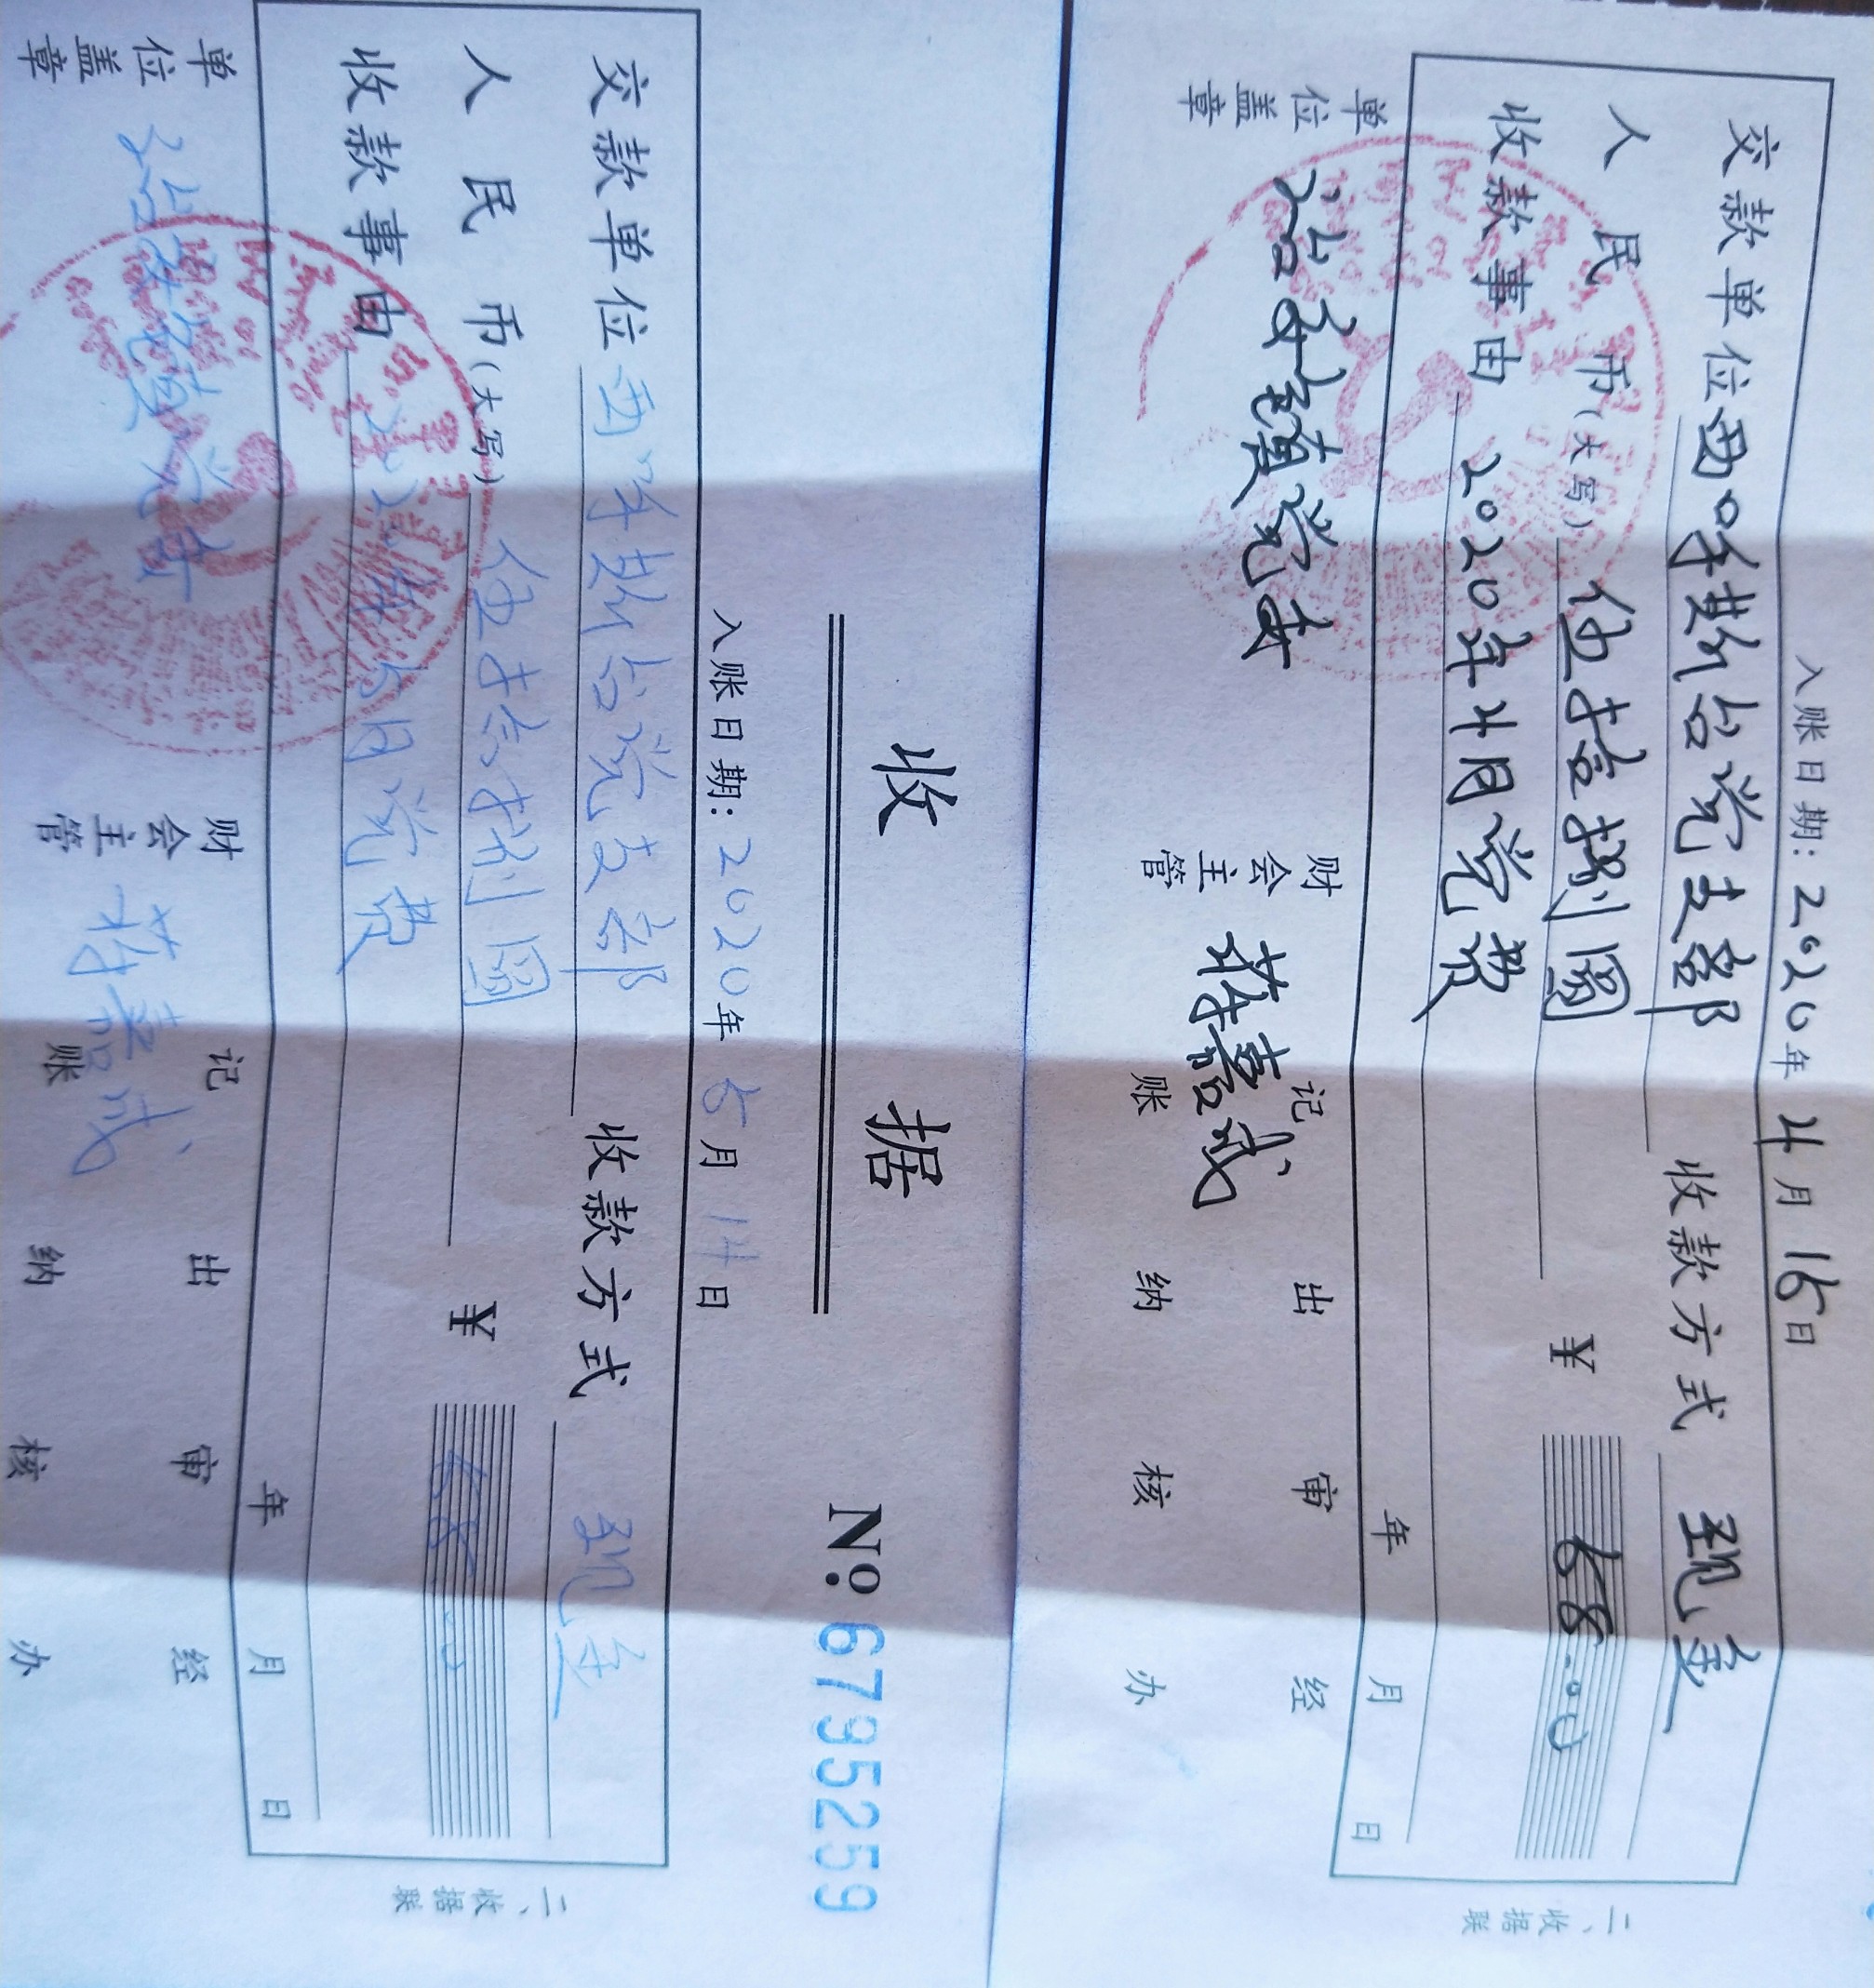 入账日期: 2020年4月15日
交款单位 西呼热台党支部 收款方式 现金
人民币(大写) 伍拾捌圆 ¥ 58.00
收款事由 2020年4月党费
年 月 日
单位盖章 治安镇党委 财会主管 蒋嘉诚 记账 出纳 审核 经办
二、收据联
收 据 No: 6795259
入账日期: 2020年5月14日
交款单位 西呼热台党支部 收款方式 现金
人民币(大写) 伍拾捌圆 ¥ 58.00
收款事由 2020年5月党费
年 月 日
单位盖章 治安镇党委 财会主管 蒋嘉诚 记账 出纳 审核 经办
二、收据联